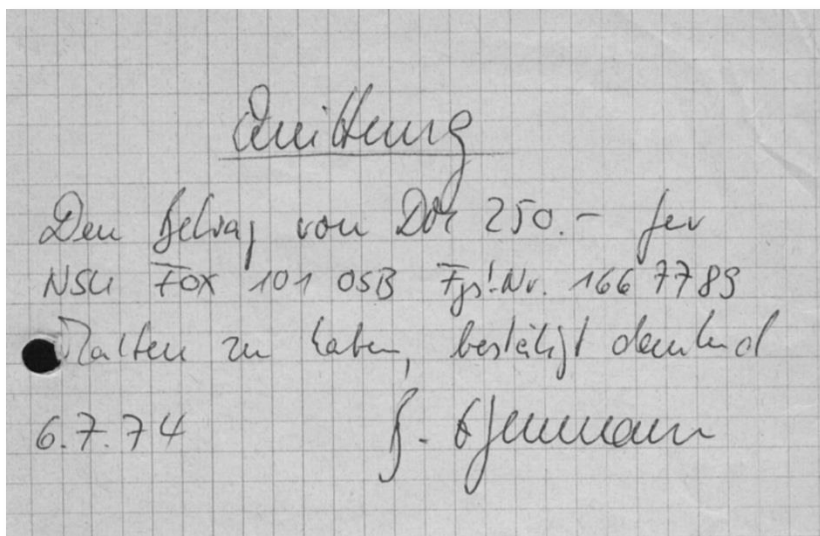 Quittung
Den Betrag von DM 250.- für
NSU Fox 101 OSB Fgst.Nr. 166 7789
erhalten zu haben, bestätigt dankend
6.7.74